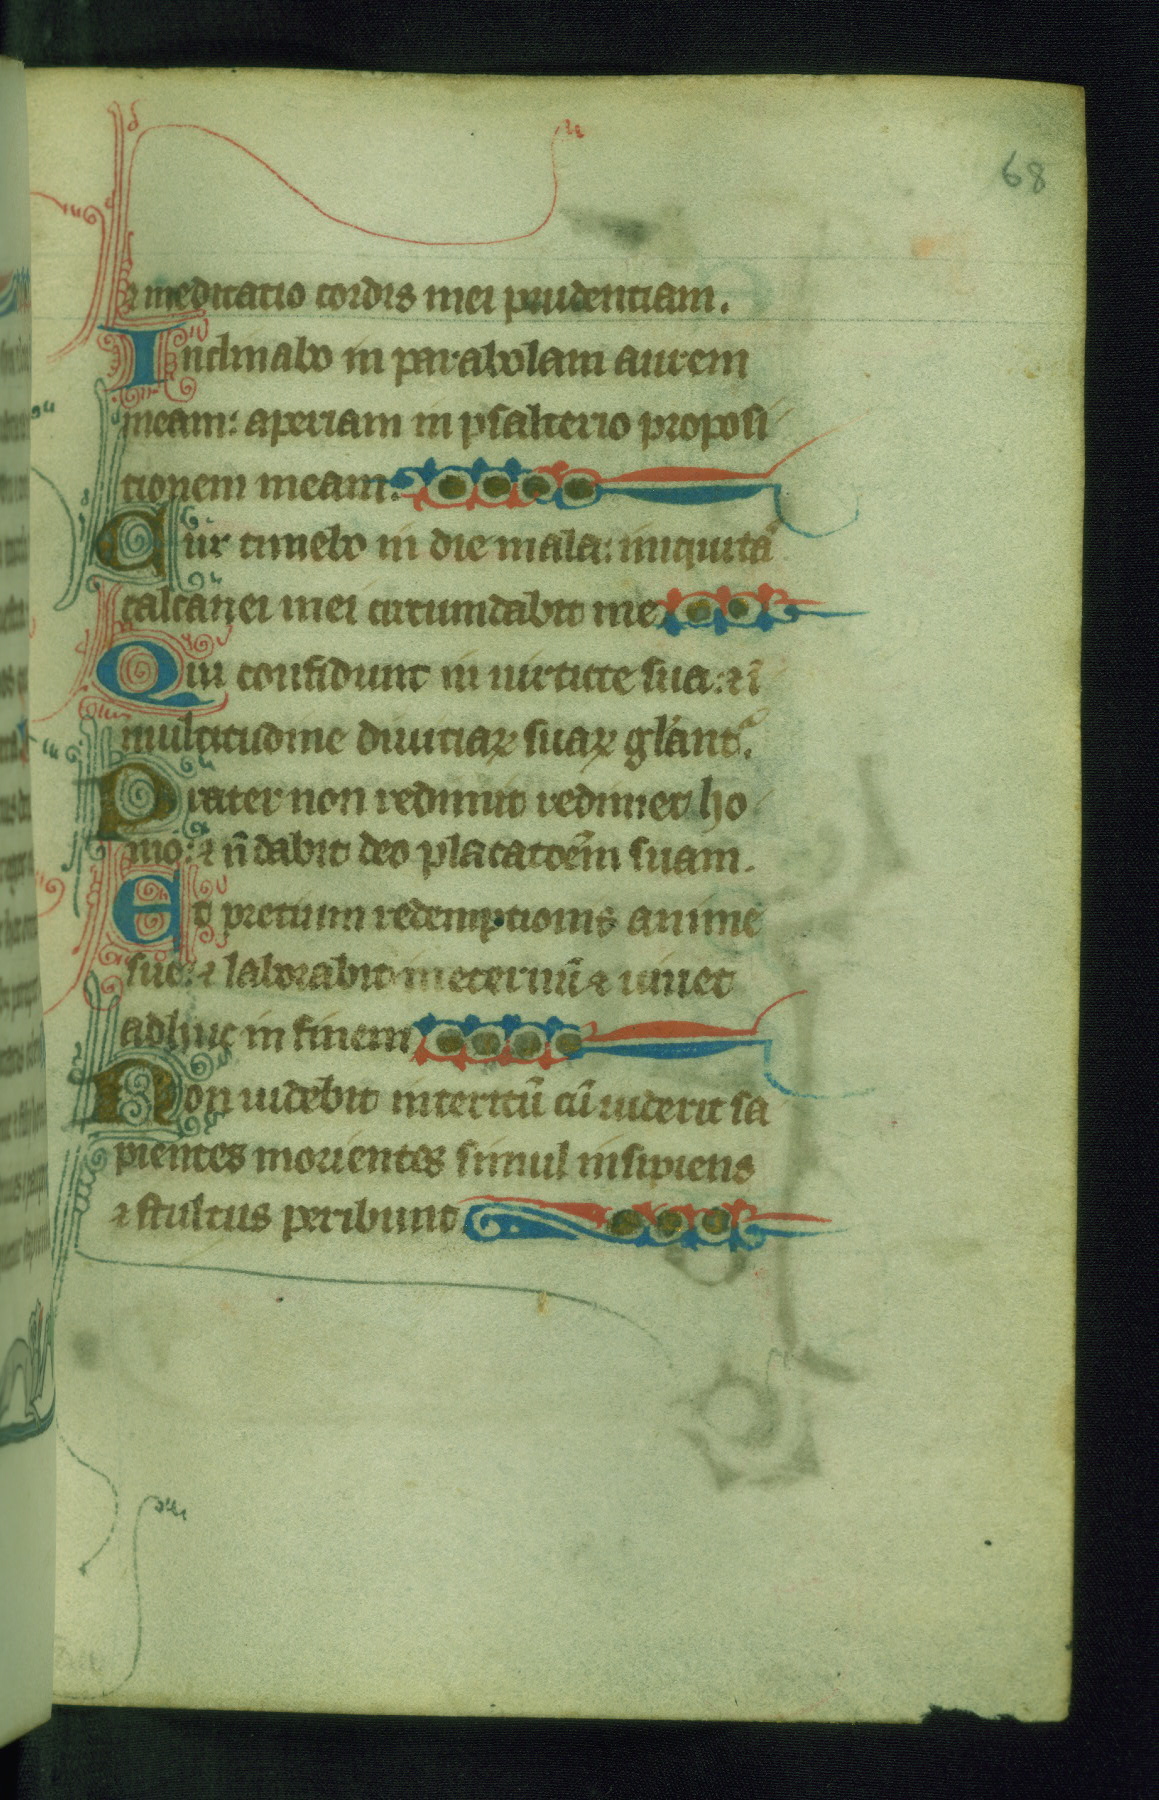 68
⁊ meditatio cordis mei prudentiam.
Inclinabo in parabolam aurem
meam: aperiam in psalterio proposi
tionem meam.
Cur timebo in die mala: iniquita᷑
calcanei mei circumdabit me
Qui confidunt in uirtute sua: ⁊ ĩ
multitudine diuitiaꝝ suaꝝ gl'ant᷑.
Frater non redimit redimet ho
mo: ⁊ ñ dabit deo placatoẽm suam.
Et pretium redemptionis anime
sue: ⁊ laborabit in eternũ ⁊ uiuet
adhuc in finem
Non uidebit interitũ cũ uiderit sa
pientes morientes simul insipiens
⁊ stultus peribunt